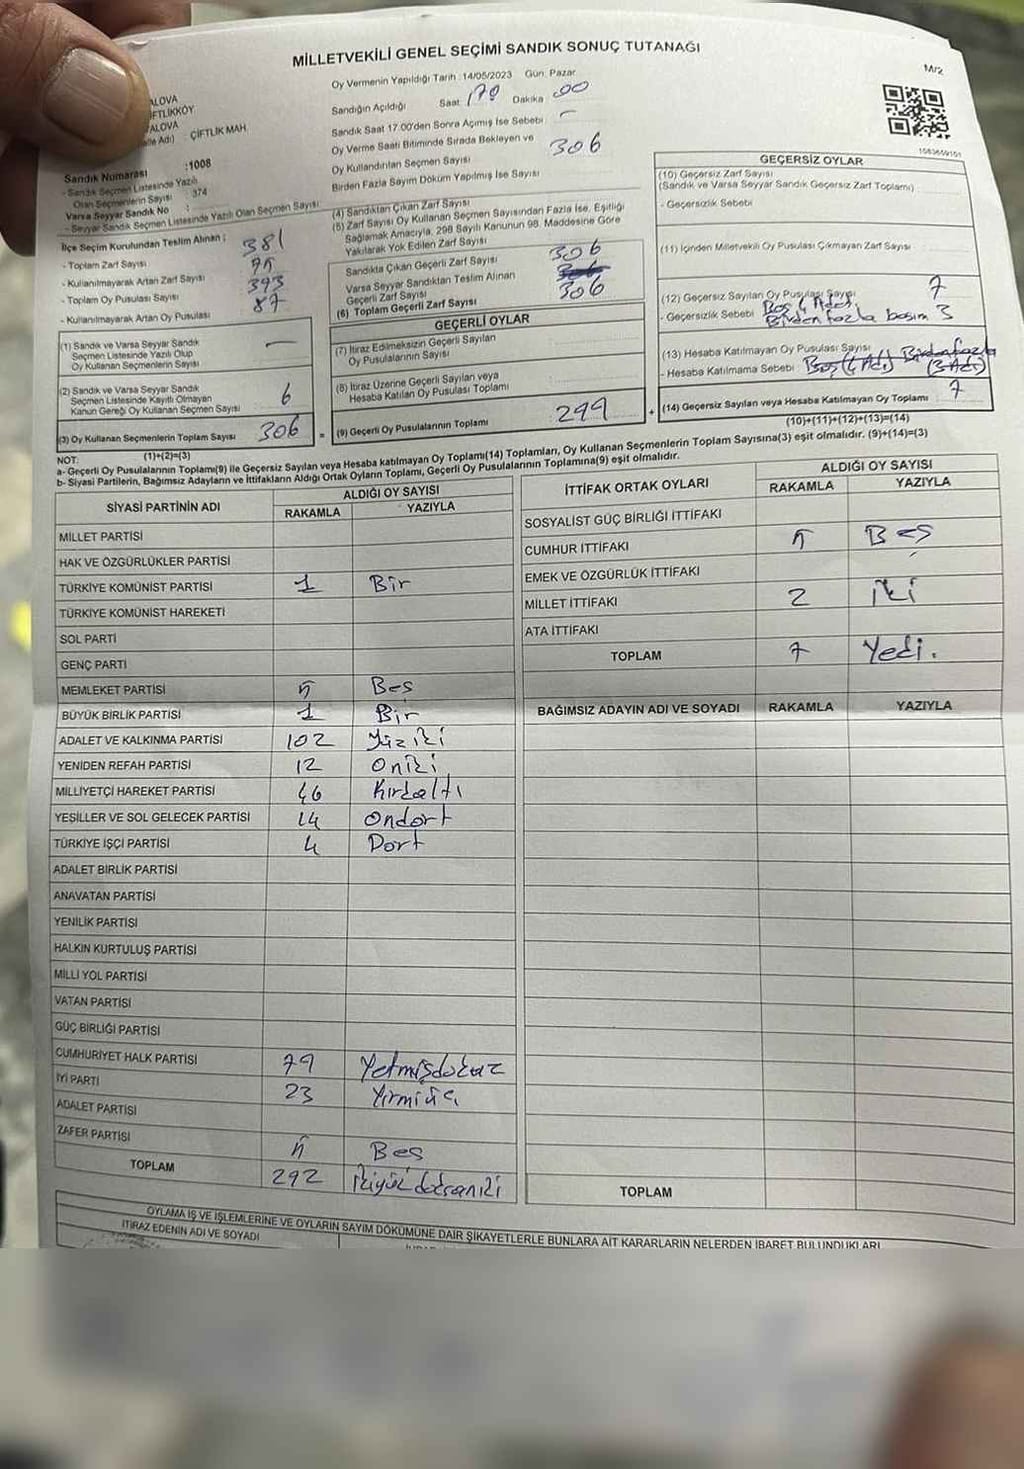 MİLLETVEKİLİ GENEL SEÇİMİ SANDIK SONUÇ TUTANAĞI
M/2
ALOVA
İFTLİKKÖY
ALOVA
Adı) : ÇİFTLİK MAH.
Sandık Numarası :1008
- Sandık Seçmen Listesinde Yazılı
Olan Seçmenlerin Sayısı : 374
Varsa Seyyar Sandık No :
- Seyyar Sandık Seçmen Listesinde Yazılı Olan Seçmen Sayısı
İlçe Seçim Kurulundan Teslim Alınan :
- Toplam Zarf Sayısı 381
- Kullanılmayarak Artan Zarf Sayısı 75
- Toplam Oy Pusulası Sayısı 393
- Kullanılmayarak Artan Oy Pusulası 87
(1) Sandık ve Varsa Seyyar Sandık
Seçmen Listesinde Yazılı Olup
Oy Kullanan Seçmenlerin Sayısı —
(2) Sandık ve Varsa Seyyar Sandık
Seçmen Listesinde Kayıtlı Olmayan
Kanun Gereği Oy Kullanan Seçmen Sayısı 6
(3) Oy Kullanan Seçmenlerin Toplam Sayısı 306 =
(1)+(2)=(3)
Oy Vermenin Yapıldığı Tarih : 14/05/2023 Gün: Pazar
Sandığın Açıldığı Saat Dakika 00
Sandık Saat 17.00'den Sonra Açımış İse Sebebi : —
Oy Verme Saati Bitiminde Sırada Bekleyen ve
Oy Kullandırılan Seçmen Sayısı 306
Birden Fazla Sayım Döküm Yapılmış İse Sayısı
(4) Sandıktan Çıkan Zarf Sayısı
(5) Zarf Sayısı Oy Kullanan Seçmen Sayısından Fazla İse, Eşitliği
Sağlamak Amacıyla, 298 Sayılı Kanunun 98. Maddesine Göre
Yakılarak Yok Edilen Zarf Sayısı
Sandıkta Çıkan Geçerli Zarf Sayısı 306
Varsa Seyyar Sandıktan Teslim Alınan
Geçerli Zarf Sayısı 306
(6) Toplam Geçerli Zarf Sayısı 306
GEÇERLİ OYLAR
(7) İtiraz Edilmeksizin Geçerli Sayılan
Oy Pusulalarının Sayısı :
(8) İtiraz Üzerine Geçerli Sayılan veya
Hesaba Katılan Oy Pusulası Toplamı :
(9) Geçerli Oy Pusulalarının Toplamı 299 +
1083659101
GEÇERSİZ OYLAR
(10) Geçersiz Zarf Sayısı
(Sandık ve Varsa Seyyar Sandık Geçersiz Zarf Toplamı)
- Geçersizlik Sebebi
(11) İçinden Milletvekili Oy Pusulası Çıkmayan Zarf Sayısı
(12) Geçersiz Sayılan Oy Pusulası Sayısı 7
- Geçersizlik Sebebi Boş 4 Adet.
Birden fazla basım 3
(13) Hesaba Katılmayan Oy Pusulası Sayısı
- Hesaba Katılmama Sebebi Boş (4 Adt) Birden fazla (3 Adt)
(14) Geçersiz Sayılan veya Hesaba Katılmayan Oy Toplamı 7
(10)+(11)+(12)+(13)=(14)
NOT:
a- Geçerli Oy Pusulalarının Toplamı(9) ile Geçersiz Sayılan veya Hesaba katılmayan Oy Toplamı(14) Toplamları, Oy Kullanan Seçmenlerin Toplam Sayısına(3) eşit olmalıdır. (9)+(14)=(3)
b- Siyasi Partilerin, Bağımsız Adayların ve İttifakların Aldığı Ortak Oyların Toplamı, Geçerli Oy Pusulalarının Toplamına(9) eşit olmalıdır.
SİYASİ PARTİNİN ADI ALDIĞI OY SAYISI
RAKAMLA YAZIYLA
MİLLET PARTİSİ
HAK VE ÖZGÜRLÜKLER PARTİSİ
TÜRKİYE KOMÜNİST PARTİSİ 1 Bir
TÜRKİYE KOMÜNİST HAREKETİ
SOL PARTİ
GENÇ PARTİ
MEMLEKET PARTİSİ 5 Beş
BÜYÜK BİRLİK PARTİSİ 1 Bir
ADALET VE KALKINMA PARTİSİ 102 Yüziki
YENİDEN REFAH PARTİSİ 12 Oniki
MİLLİYETÇİ HAREKET PARTİSİ 46 Kırkaltı
YEŞİLLER VE SOL GELECEK PARTİSİ 14 Ondört
TÜRKİYE İŞÇİ PARTİSİ 4 Dört
ADALET BİRLİK PARTİSİ
ANAVATAN PARTİSİ
YENİLİK PARTİSİ
HALKIN KURTULUŞ PARTİSİ
MİLLİ YOL PARTİSİ
VATAN PARTİSİ
GÜÇ BİRLİĞİ PARTİSİ
CUMHURİYET HALK PARTİSİ 79 Yetmişdokuz
İYİ PARTİ 23 Yirmiüç
ADALET PARTİSİ
ZAFER PARTİSİ 5 Beş
TOPLAM 292 İkiyüzdoksaniki
İTTİFAK ORTAK OYLARI ALDIĞI OY SAYISI
RAKAMLA YAZIYLA
SOSYALİST GÜÇ BİRLİĞİ İTTİFAKI
CUMHUR İTTİFAKI 5 Beş
EMEK VE ÖZGÜRLÜK İTTİFAKI
MİLLET İTTİFAKI 2 iki
ATA İTTİFAKI
TOPLAM 7 Yedi.
BAĞIMSIZ ADAYIN ADI VE SOYADI RAKAMLA YAZIYLA
TOPLAM
OYLAMA İŞ VE İŞLEMLERİNE VE OYLARIN SAYIM DÖKÜMÜNE DAİR ŞİKAYETLERLE BUNLARA AİT KARARLARIN NELERDEN İBARET BULUNDUKLARI
İTİRAZ EDENİN ADI VE SOYADI